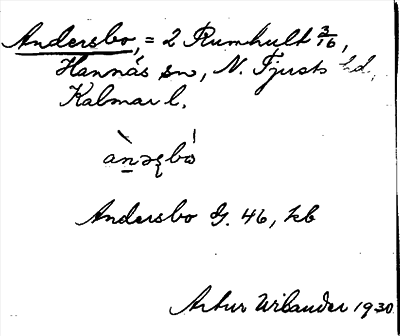 Andersbo, = 2 Rumhult 3/16,
Hannäs sn, N. Tjusts hd,
Kalmar l.
Andersbo G. 46, kb
Artur Wilander 1930